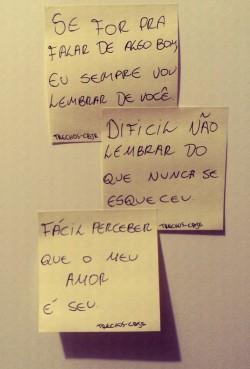 SE FOR PRA
FALAR DE ALGO BOM,
EU SEMPRE VOU
LEMBRAR DE VOCÊ.
TRECHOS-CBJR
DIFICIL NÃO
LEMBRAR DO
QUE NUNCA SE
ESQUECEU.
TRECHOS-CBJR
FÁCIL PERCEBER
QUE O MEU
AMOR
É SEU.
TRECHOS-CBJR